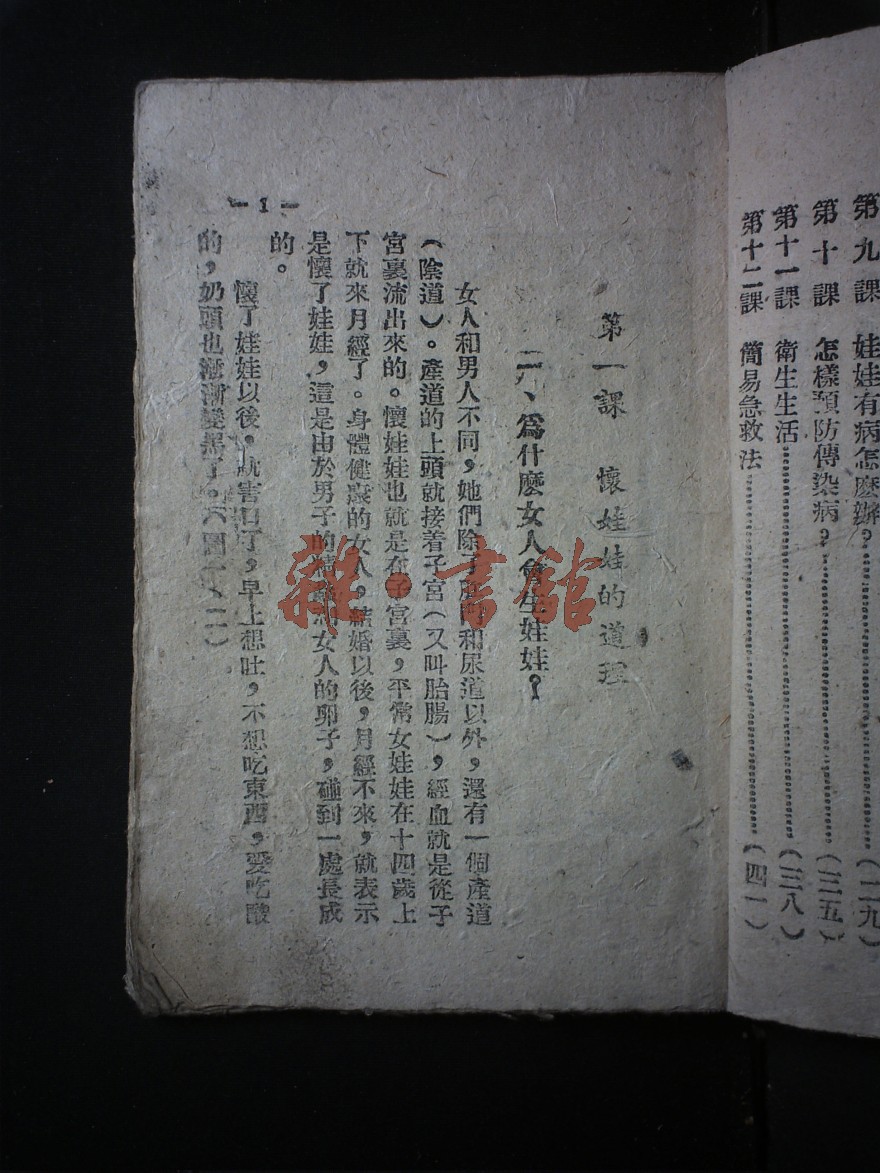 第九課 娃娃有病怎麽辦？……(二九)
第十課 怎樣預防傳染病？……(三五)
第十一課 衛生生活……(三八)
第十二課 簡易急救法……(四一)
第一課 懷娃娃的道理
一、爲什麽女人會生娃娃？
女人和男人不同，她們除了肛門和尿道以外，還有一個產道
（陰道）。產道的上頭就接着子宮（又叫胎腸），經血就是從子
宮裏流出來的。懷娃娃也就是在子宮裏，平常女娃娃在十四歲上
下就來月經了。身體健康的女人，結婚以後，月經不來，就表示
是懷了娃娃，這是由於男子的精蟲和女人的卵子，碰到一處長成
的。
懷了娃娃以後，就害口了，早上想吐，不想吃東西，愛吃酸
的，奶頭也漸漸變黑了。（圖一、二）
- 1 -
雜·書館